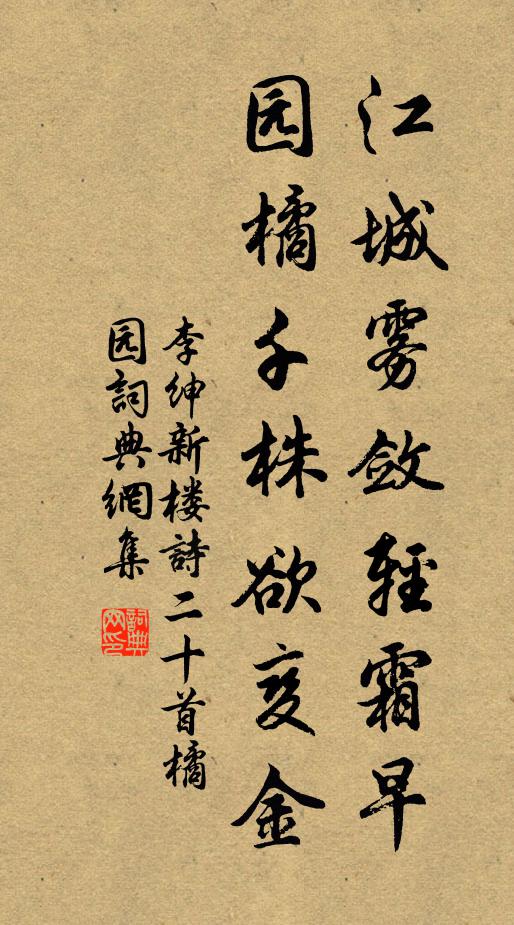 江城雾敛轻霜早
园橘千株欲变金
李绅新楼詩二十首橘
园詞典網集
詞典网印